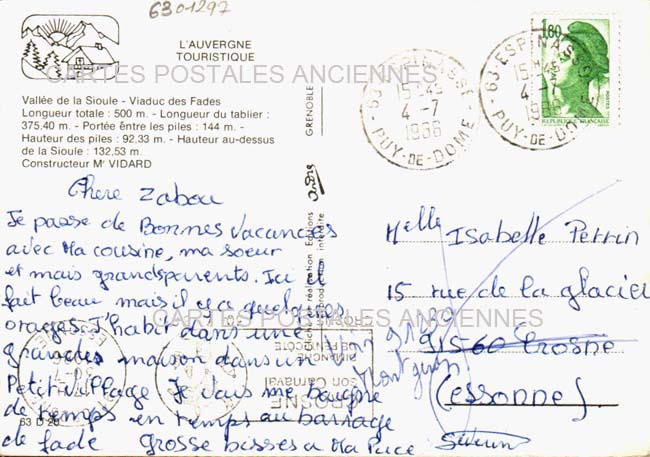 6301297
L'AUVERGNE
TOURISTIQUE
CARTES POSTALES ANCIENNES
Vallée de la Sioule - Viaduc des Fades
Longueur totale : 500 m. - Longueur du tablier :
375,40 m. - Portée entre les piles : 144 m. -
Hauteur des piles : 92,33 m. - Hauteur au-dessus
de la Sioule : 132,53 m.
Constructeur Mr VIDARD
Chere Zabou
Je passe de Bonnes Vacances
avec Ma cousine, ma soeur
et mais grandsparents. Ici il
fait beau mais il y a quelques
orages. J'habit dans une
Grandes maison dans un
Petit village Je vais me baigne
de temps en temps au barrage
de fade Grosse bisses a Ma Puce
63 D 20
GRENOBLE
63 ESPINASSE
15 H 45
4 -7
1986
PUY-DE-DOME
63 ESPINASSE
15 H 45
4 -7
1986
PUY-DE-DOME
1,80
REPUBLIQUE FRANÇAISE
POSTES
Melle Isabelle Perrin
15 rue de la glacier
91560 Crosne
Montgeron
(essonnes)
CARTES POSTALES ANCIENNES
CROSNE
son Carnaval
DIMANCHE